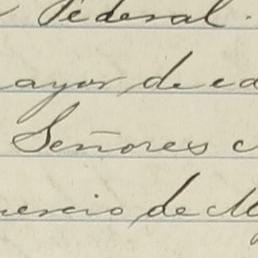 Federal.
ayor de ed
Señores
ercio de M